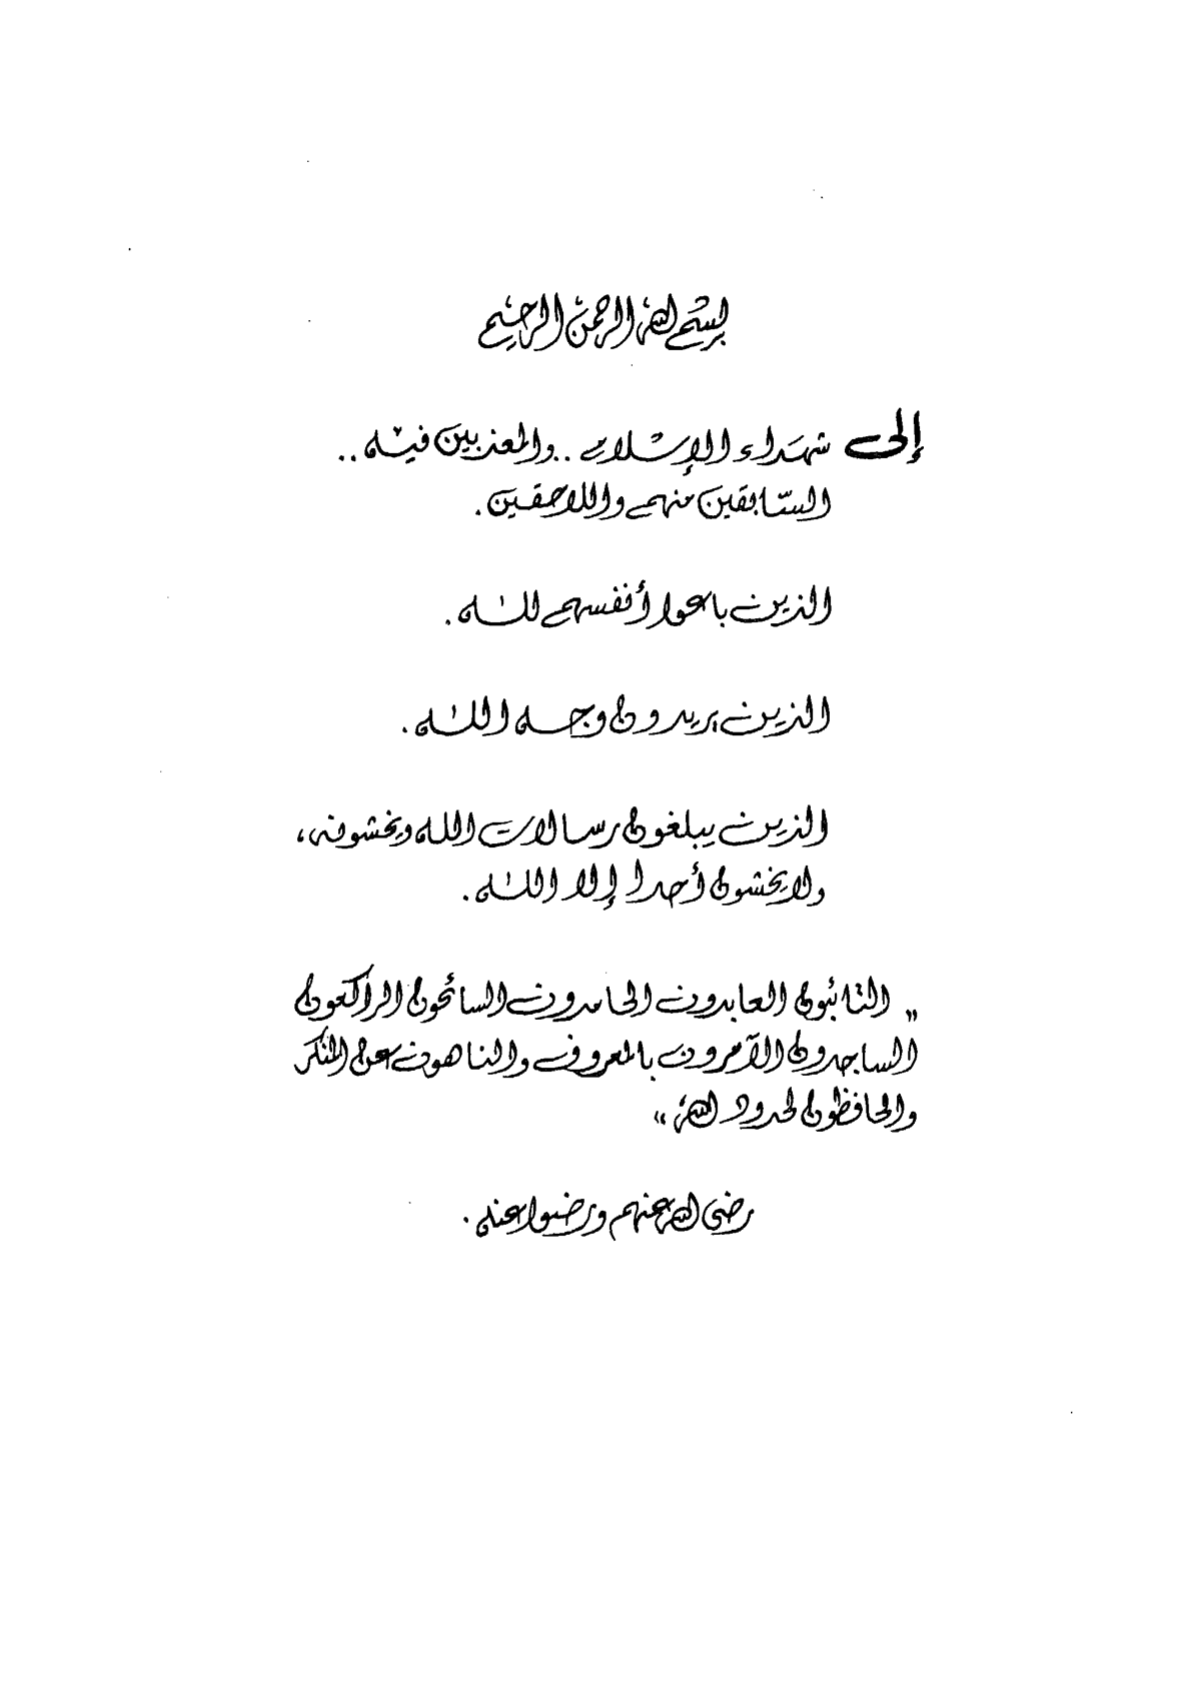 بسم الله الرحمن الرحيم
إلى شهداء الإسلام .. والمعذبين فيه ..
السّابقين منهم واللاحقين .
الذين باعوا أنفسهم لله .
الذين يريدون وجه الله .
الذين يبلغون رسالات الله ويخشونه ،
ولا يخشون أحدا إلا الله .
„ التائبون العابدون الحامدون السائحون الراكعون
الساجدون الآمرون بالمعروف والناهون عن المنكر
والحافظون لحدود الله “
رضي الله عنهم ورضوا عنه .